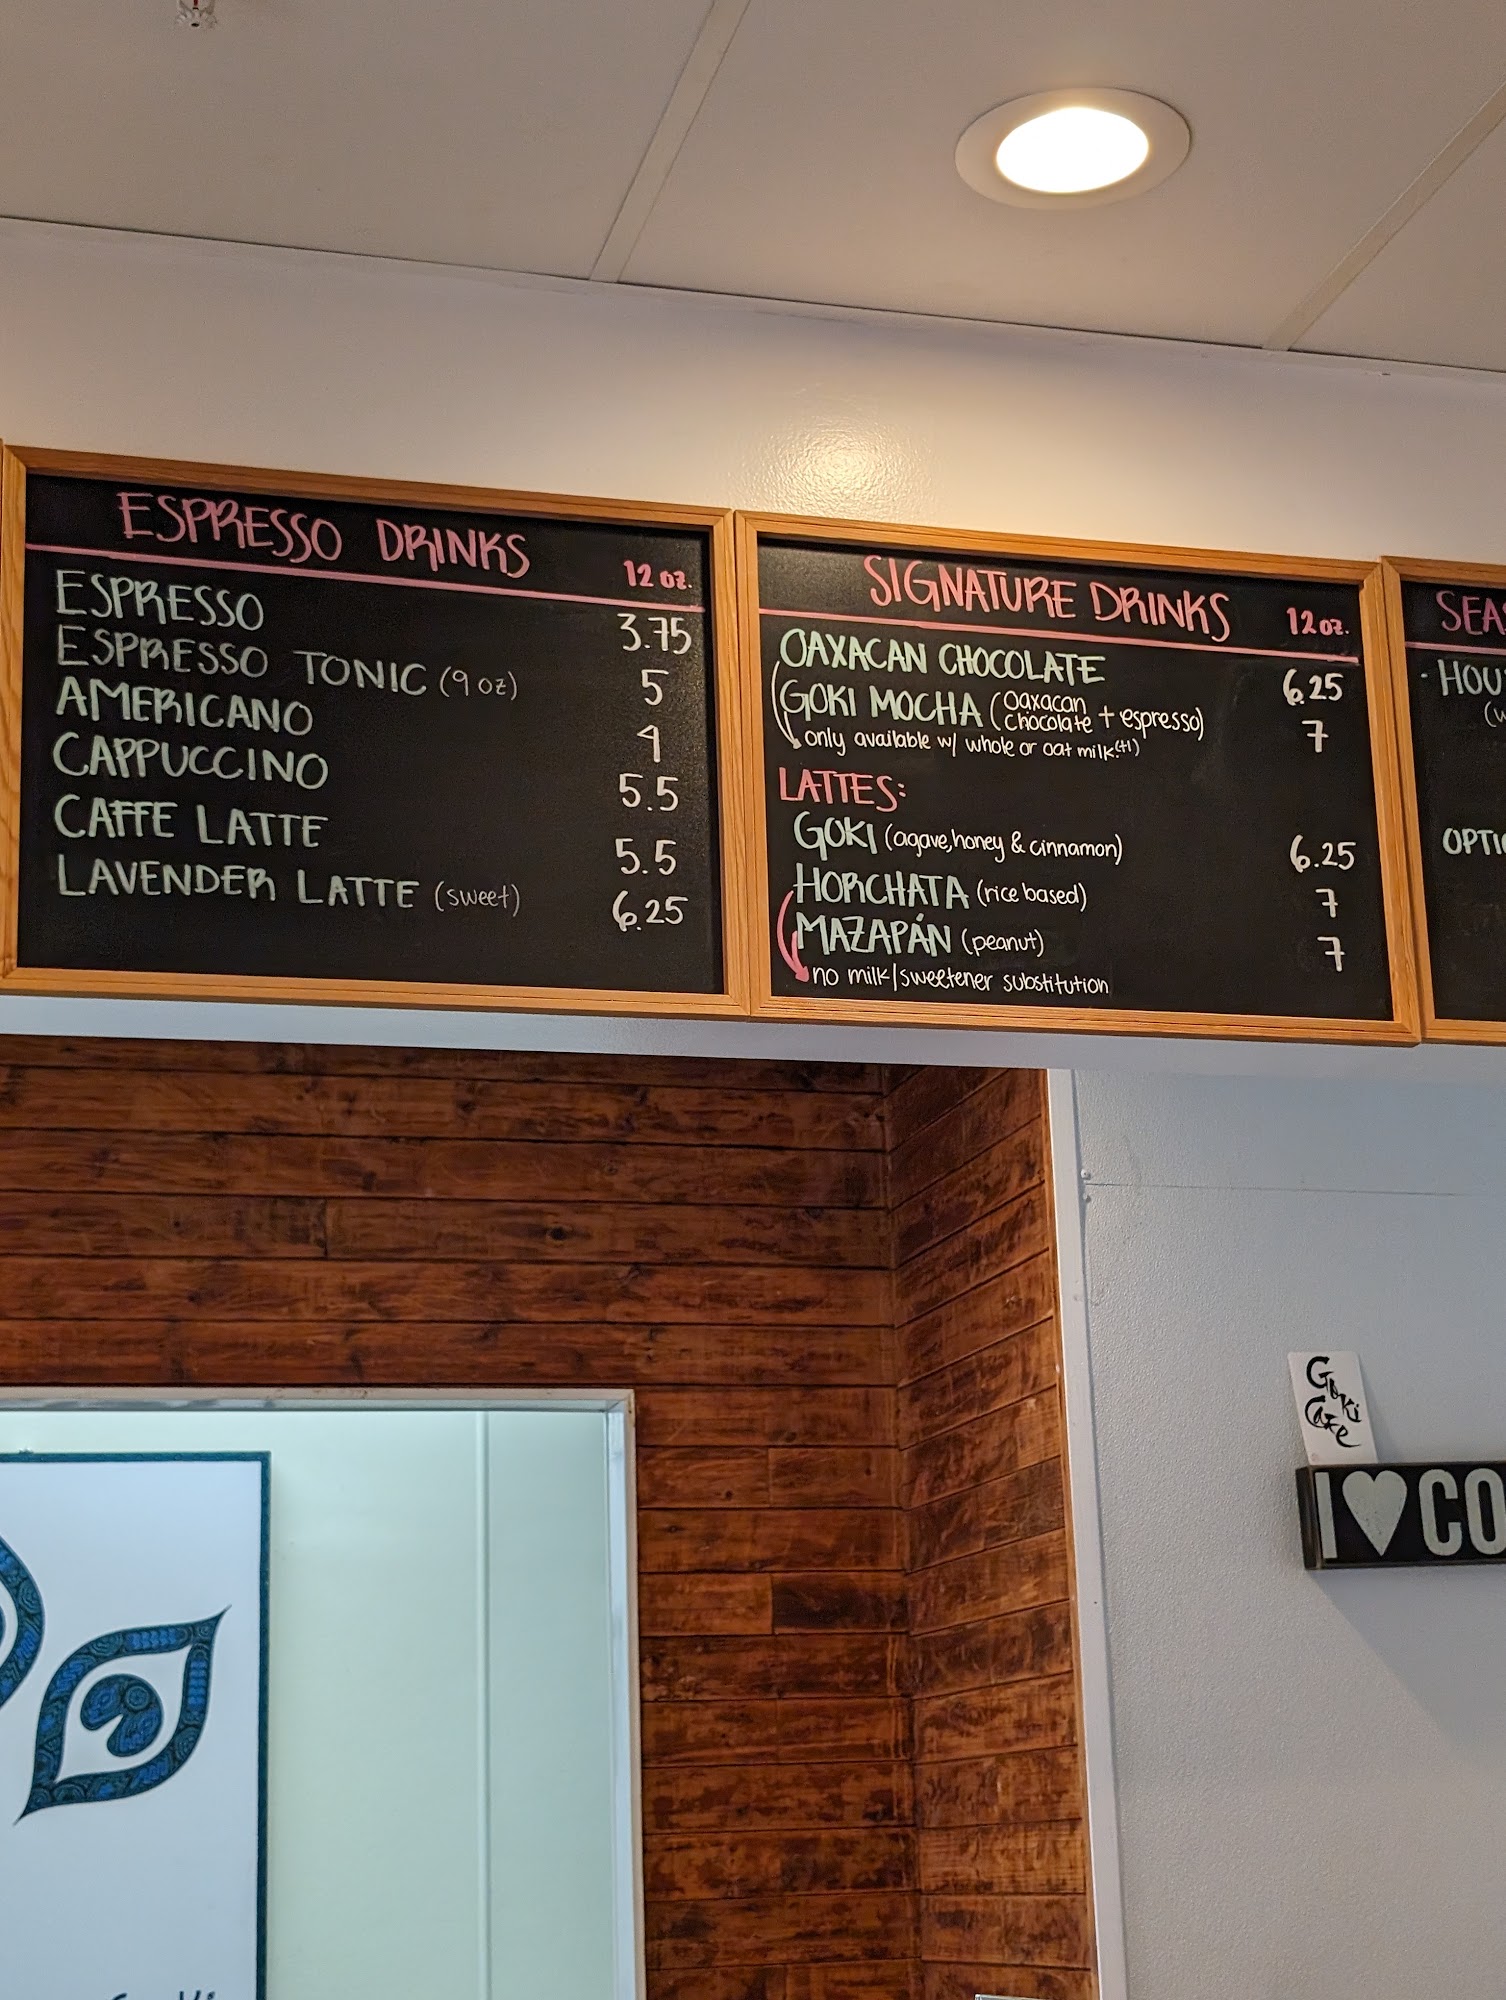 ESPRESSO DRINKS 12 oz.
ESPRESSO 3.75
ESPRESSO TONIC (9 oz) 5
AMERICANO 4
CAPPUCCINO 5.5
CAFFE LATTE 5.5
LAVENDER LATTE (sweet) 6.25
SIGNATURE DRINKS 12 oz.
OAXACAN CHOCOLATE 6.25
GOKI MOCHA (Oaxacan chocolate + espresso) 7
only available w/ whole or oat milk (+1)
LATTES:
GOKI (agave, honey & cinnamon) 6.25
HORCHATA (rice based) 7
MAZAPÁN (peanut) 7
no milk/sweetener substitution
SEA
· HOU
(w
OPTIO
Goki
Cafe
I ♥ CO